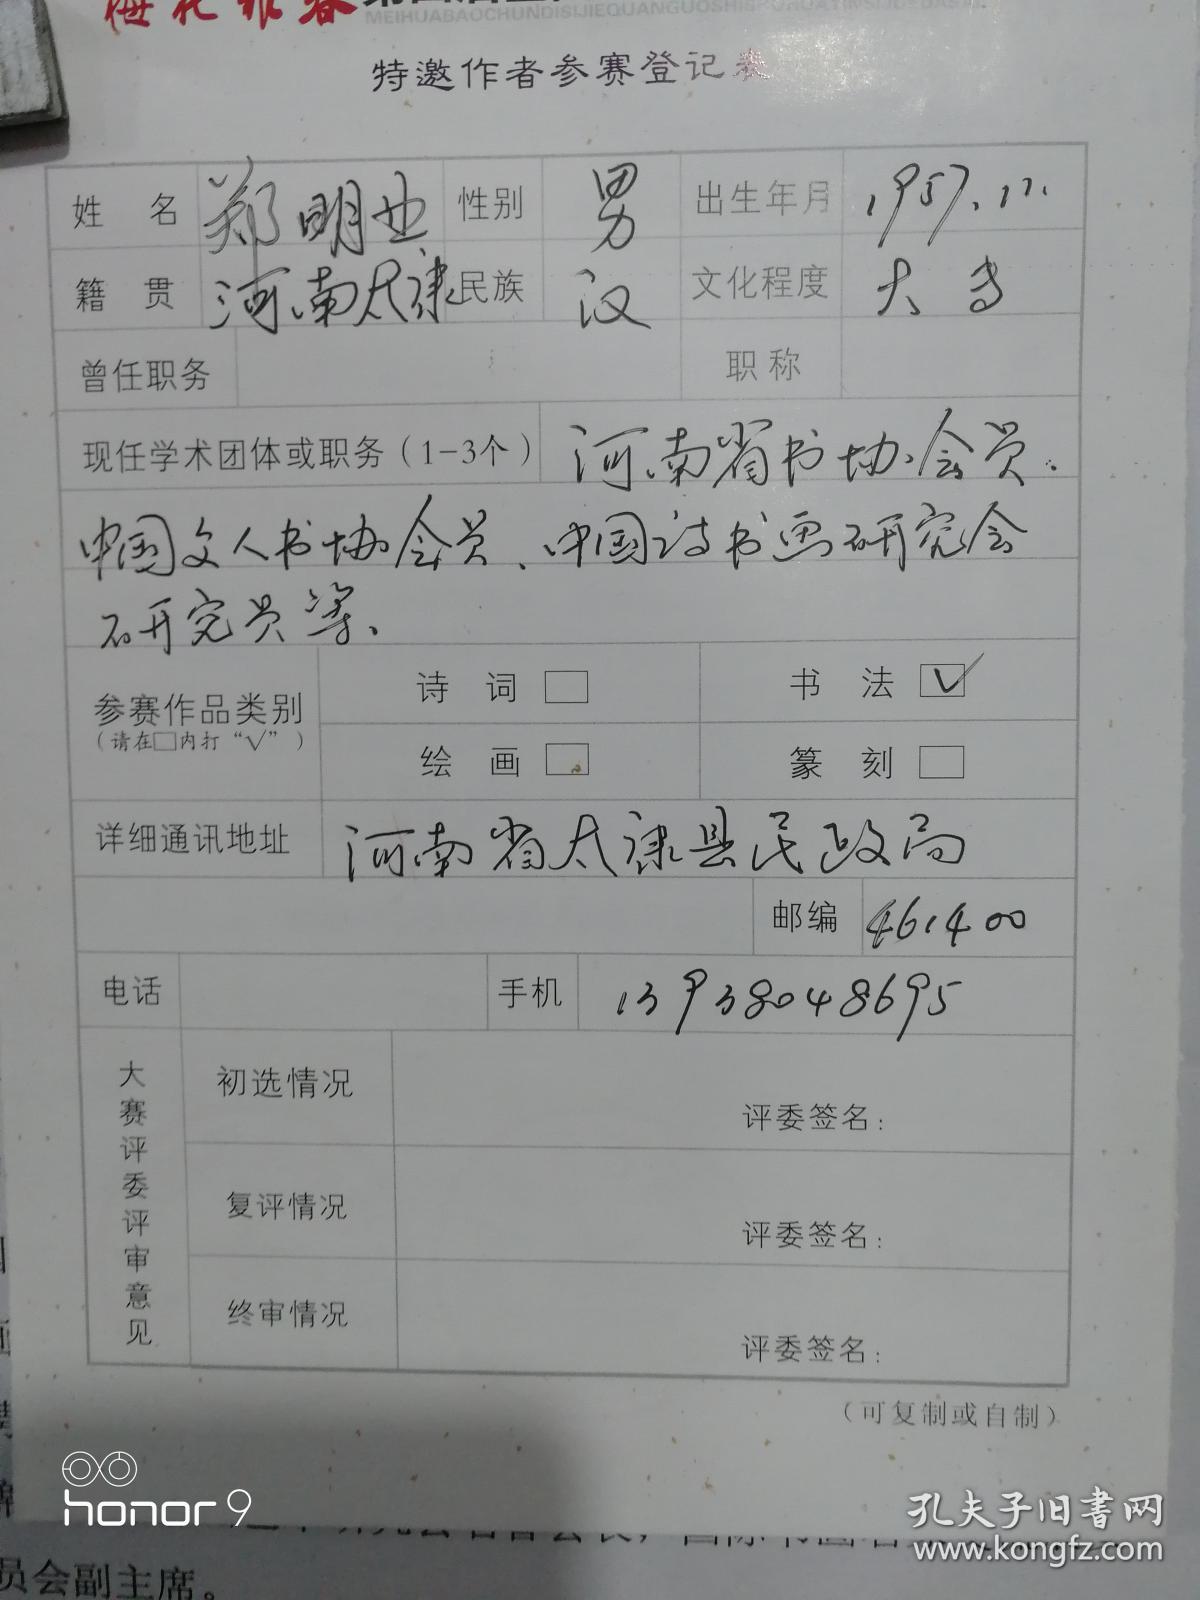 梅花报春
MEIHUABAOCHUNDISIJIEQUANGUOSHISHUHUAYINSIJUEDASAI
特邀作者参赛登记表
姓 名 郑明业 性别 男 出生年月 1957.11.
籍 贯 河南太康 民族 汉 文化程度 大专
曾任职务 职称
现任学术团体或职务（1-3个） 河南省书协会员、
中国文人书协会员、中国诗书画研究会
研究员等、
参赛作品类别 诗 词 □ 书 法 ☑
（请在□内打“√”）
绘 画 □ 篆 刻 □
详细通讯地址 河南省太康县民政局
邮编 461400
电话 手机 13938048695
大赛评委评审意见
初选情况
评委签名：
复评情况
评委签名：
终审情况
评委签名：
（可复制或自制）
honor 9
孔夫子旧书网
www.kongfz.com
员会副主席。